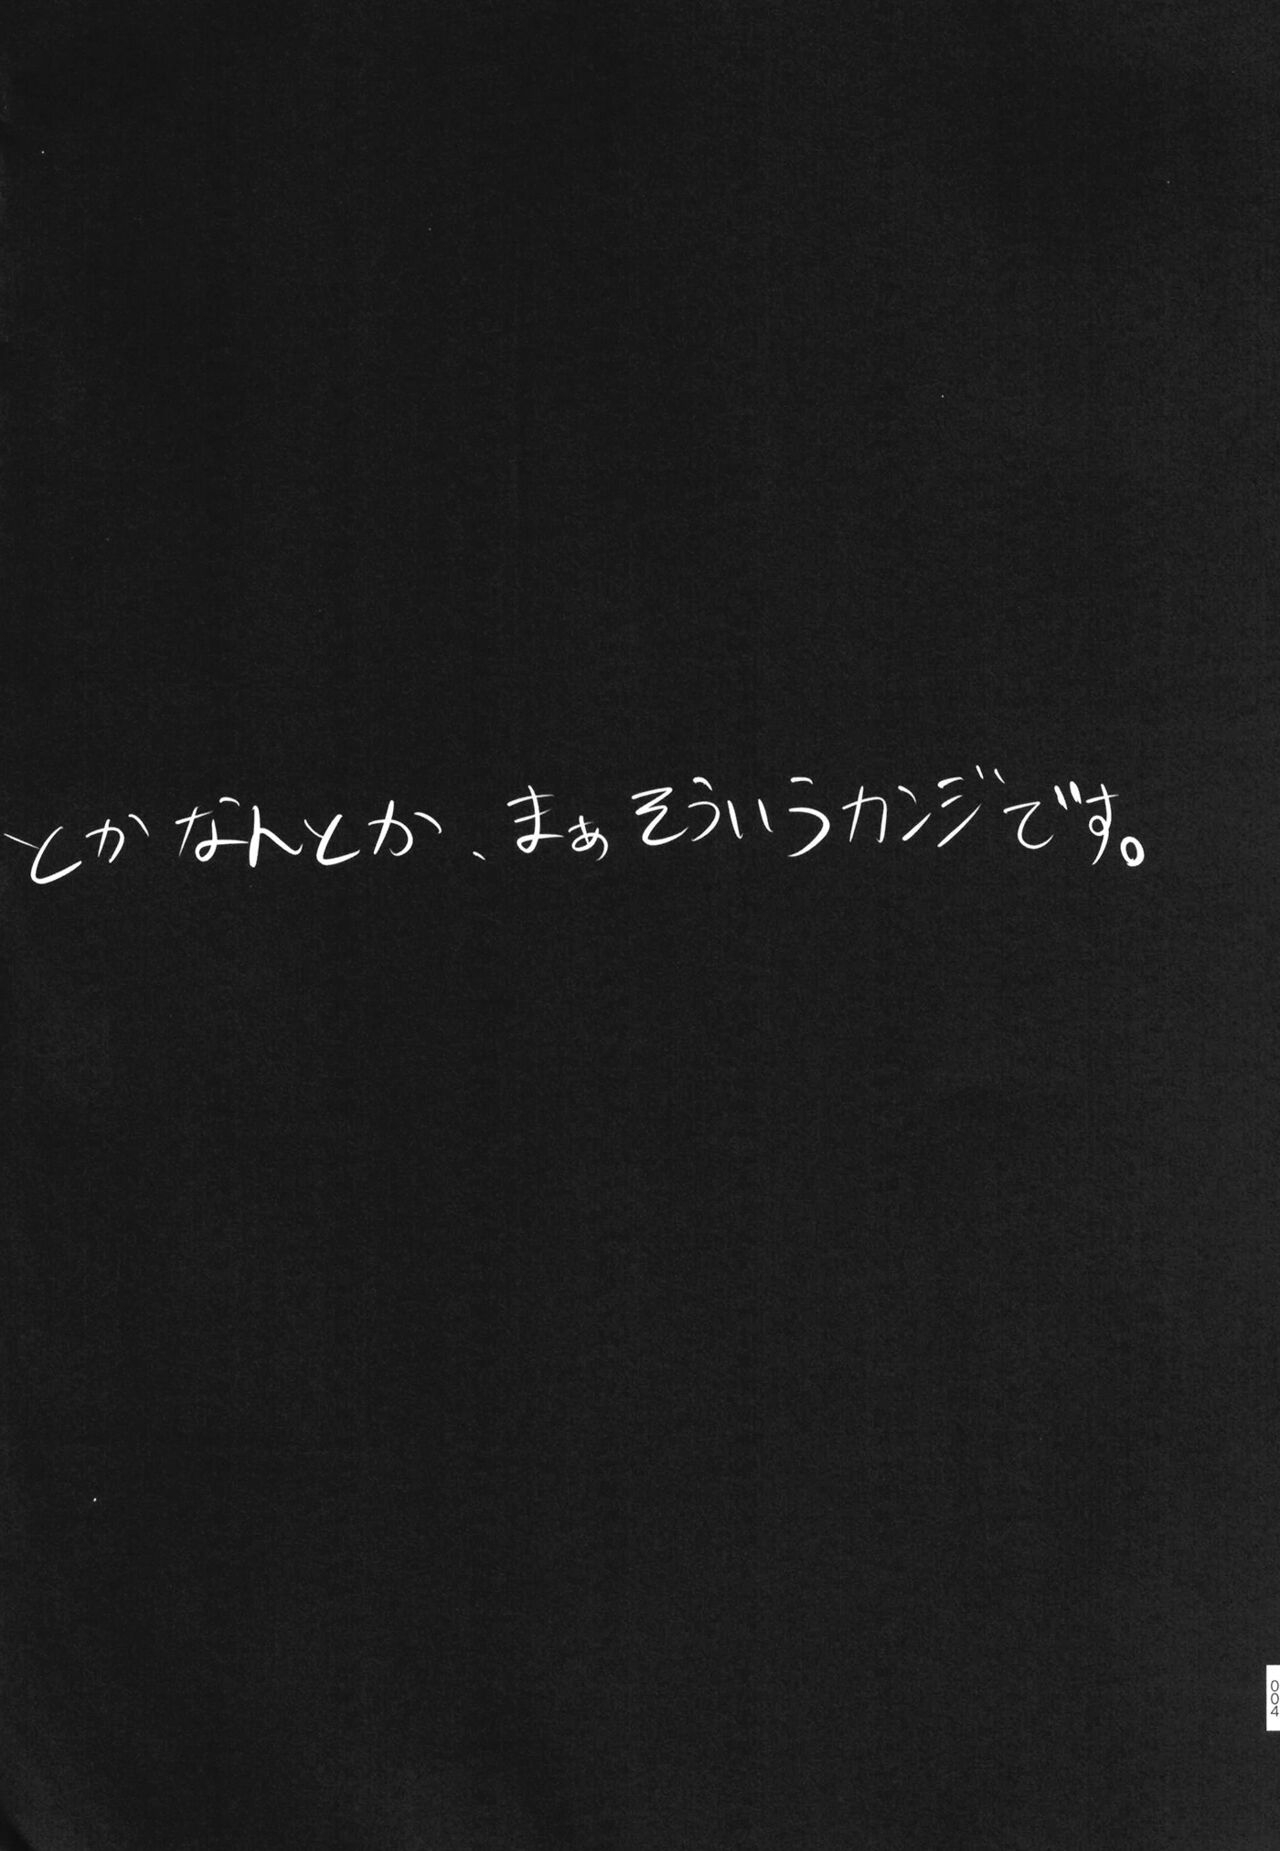 とかなんとか、まぁそういうカンジです。
004